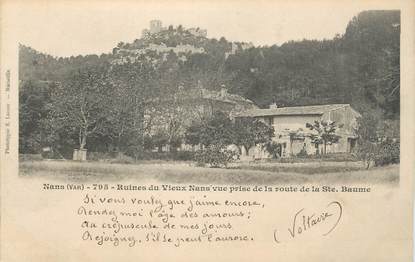 Phototypie E. Lacour — Marseille
Nans (Var) - 795 - Ruines du Vieux Nans vue prise de la route de la Ste. Baume
Si vous voulez que j'aime encore,
Rendez moi l'âge des amours;
Au crépuscule de mes jours
Rejoignez, s'il se peut l'aurore.
(Voltaire)